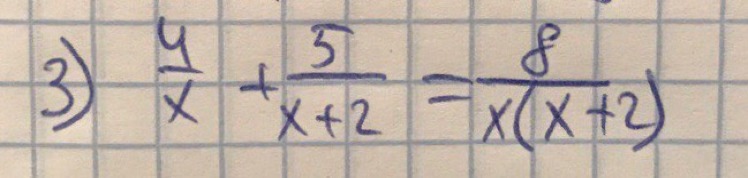 3) 4/x + 5/(x+2) = 8/(x(x+2))